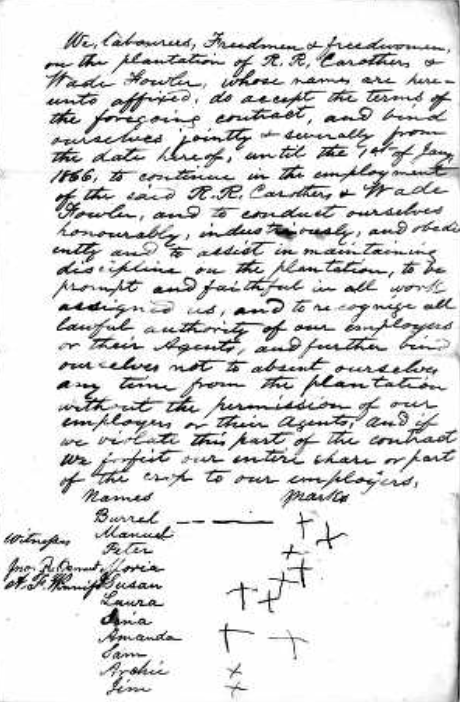 We, labourers, Freedmen & freedwomen,
on the plantation of R. R. Carothers &
Wade Fowler, whose names are here=
unto affixed, do accept the terms of
the foregoing contract, and bind
ourselves jointly & severally from
the date hereof, until the 1st of Jany
1866, to continue in the employment
of the said R. R. Carothers & Wade
Fowler, and to conduct ourselves
honourably, industriously, and obedi
ently and to assist in maintaining
discipline on the plantation, to be
prompt and faithful in all work
assigned us, and to recognize all
lawful authority of our employers
or their Agents, and further bind
ourselves not to absent ourselves
any time from the plantation
without the permission of our
employers or their Agents, and if
we violate this part of the contract
we forfeit our entire share or part
of the crop to our employers.
Names Marks
Burrel
Manuel
Witness Peter
Jno. R.
A. F. Susan
Laura
Amanda
Sam
Archie
Jim